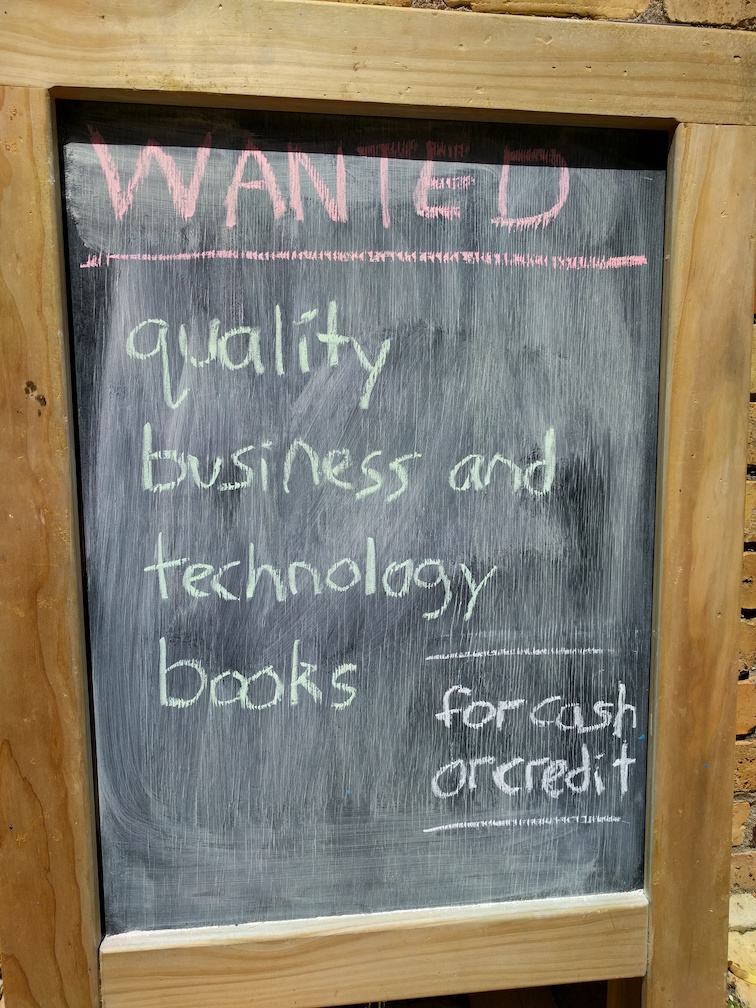 WANTED
quality
business and
technology
books
for cash
or credit